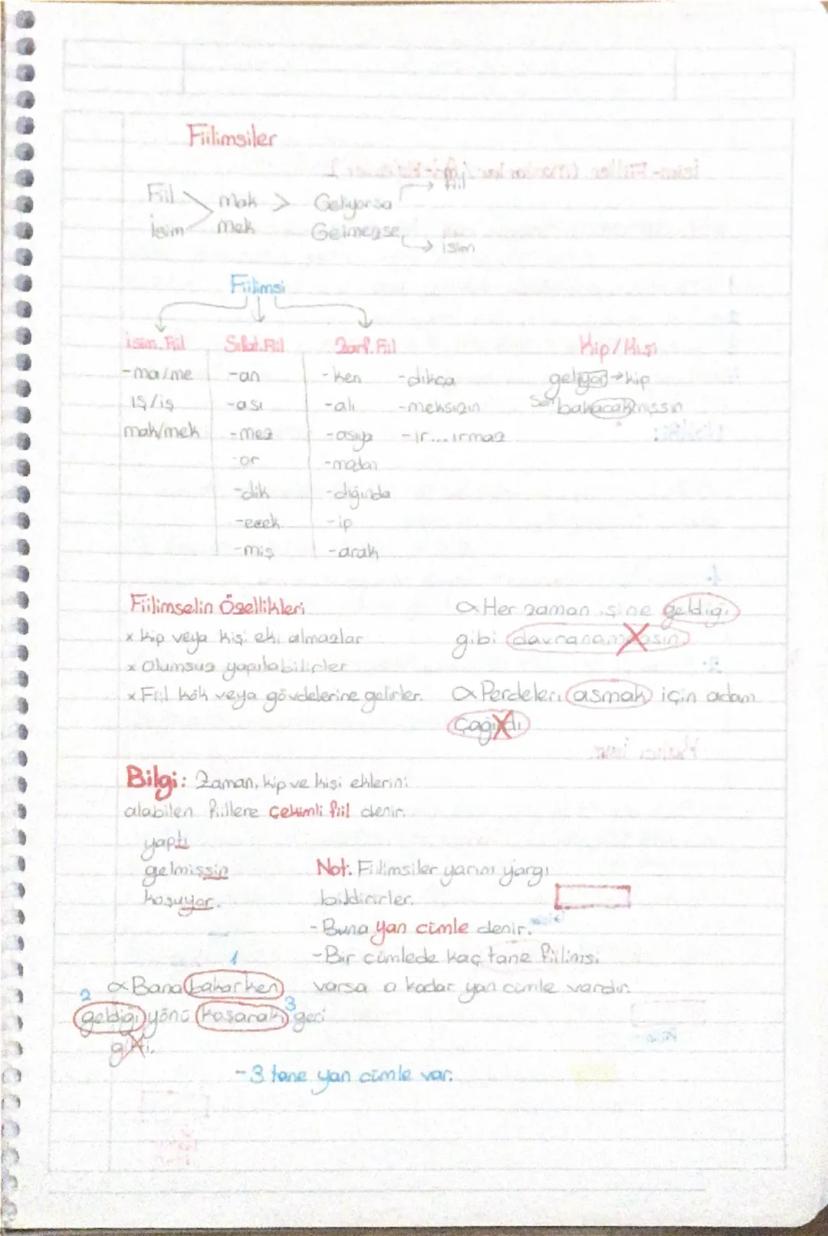 Fiilimsiler
Fiil > mak > Geliyorsa → fiil
İsim mek Gelmezse → isim
Fiilimsi
İsim.Fiil Sıfat.Fiil Zarf.Fiil Kip/Kişi
-ma/me -an -ken -dıkça geliyor → kip
ış/iş -ası -alı -meksizin Sen bakacakmışsın
mak/mek -mez -asıya -ır...ırmaz
-or -madan
-dik -dığında
-ecek -ip
-miş -arak
Fiilimselin Özellikleri
x Kip veya kişi eki almazlar
x Olumsuz yapılabilirler
x Fiil kök veya gövdelerine gelirler.
∝ Her zaman işine geldiği
gibi davranamazsın
∝ Perdeleri asmak için adam
çağırdı
Bilgi: Zaman, kip ve kişi eklerini
alabilen fiillere çekimli fiil denir.
yaptı
gelmişsin
koşuyor.
Not. Fiilimsiler yarım yargı
bildirirler.
- Buna yan cümle denir.
- Bir cümlede kaç tane fiilimsi
varsa o kadar yan cümle vardır.
1
∝ Bana bakarken
2 geldiği yönü koşarak 3 geri
gitti.
- 3 tane yan cümle var.